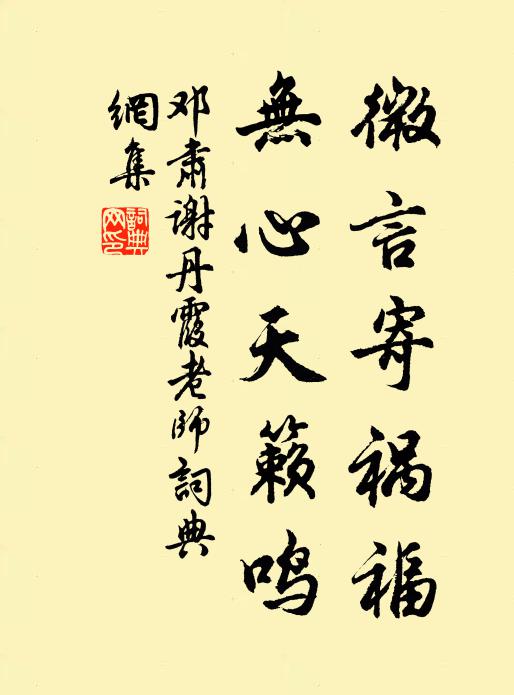 微言寄祸福
無心天籁鸣
邓肃谢丹霞老师詞典
網集
詞典
网印